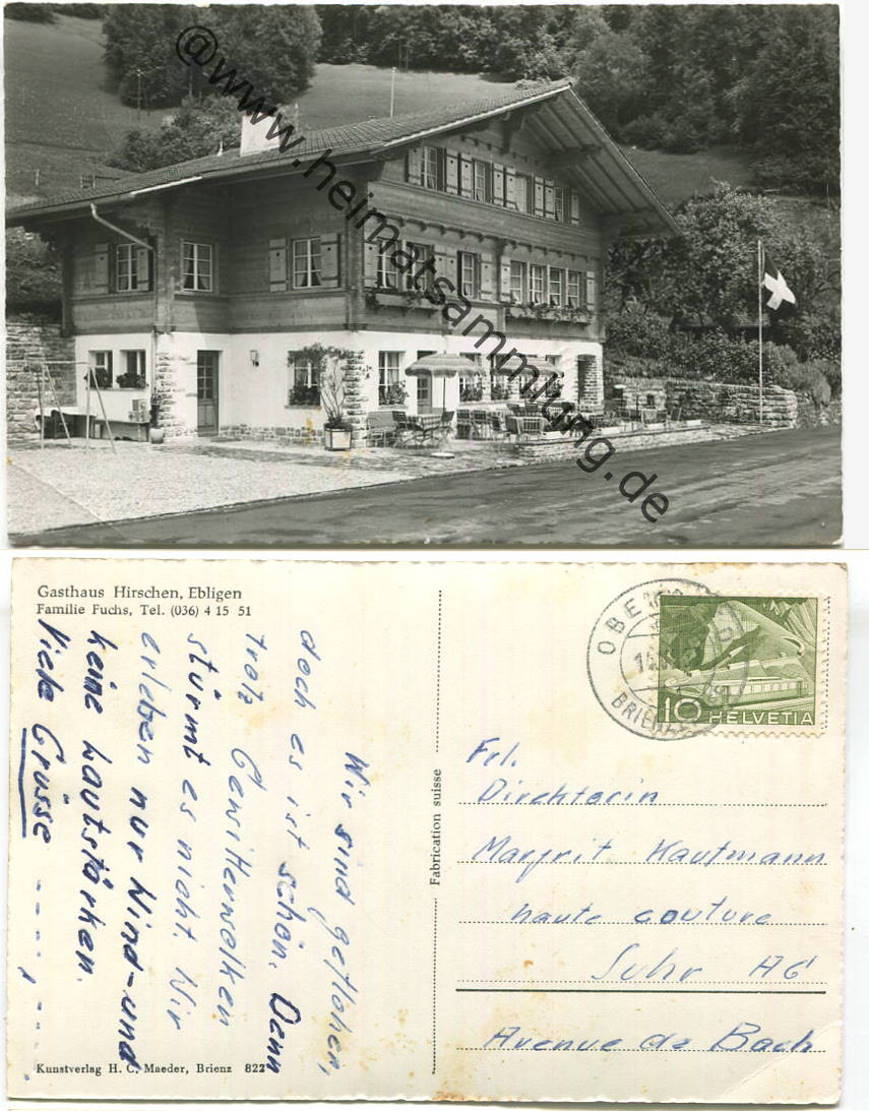 @www.heimatsammlung.de
Gasthaus Hirschen, Ebligen
Familie Fuchs, Tel. (036) 4 15 51
Wir sind geflohen,
doch es ist schön. Denn
trotz Gewitterwolken
stürmt es nicht. Wir
erleben nur Wind- und
keine Lautstärken.
Viele Grüsse
Kunstverlag H. C. Maeder, Brienz 822
Fabrication suisse
OBE
BRIENZ
10 HELVETIA
Frl.
Direktorin
Margrit Kaufmann
haute couture
Suhr AG
Avenue de Bach